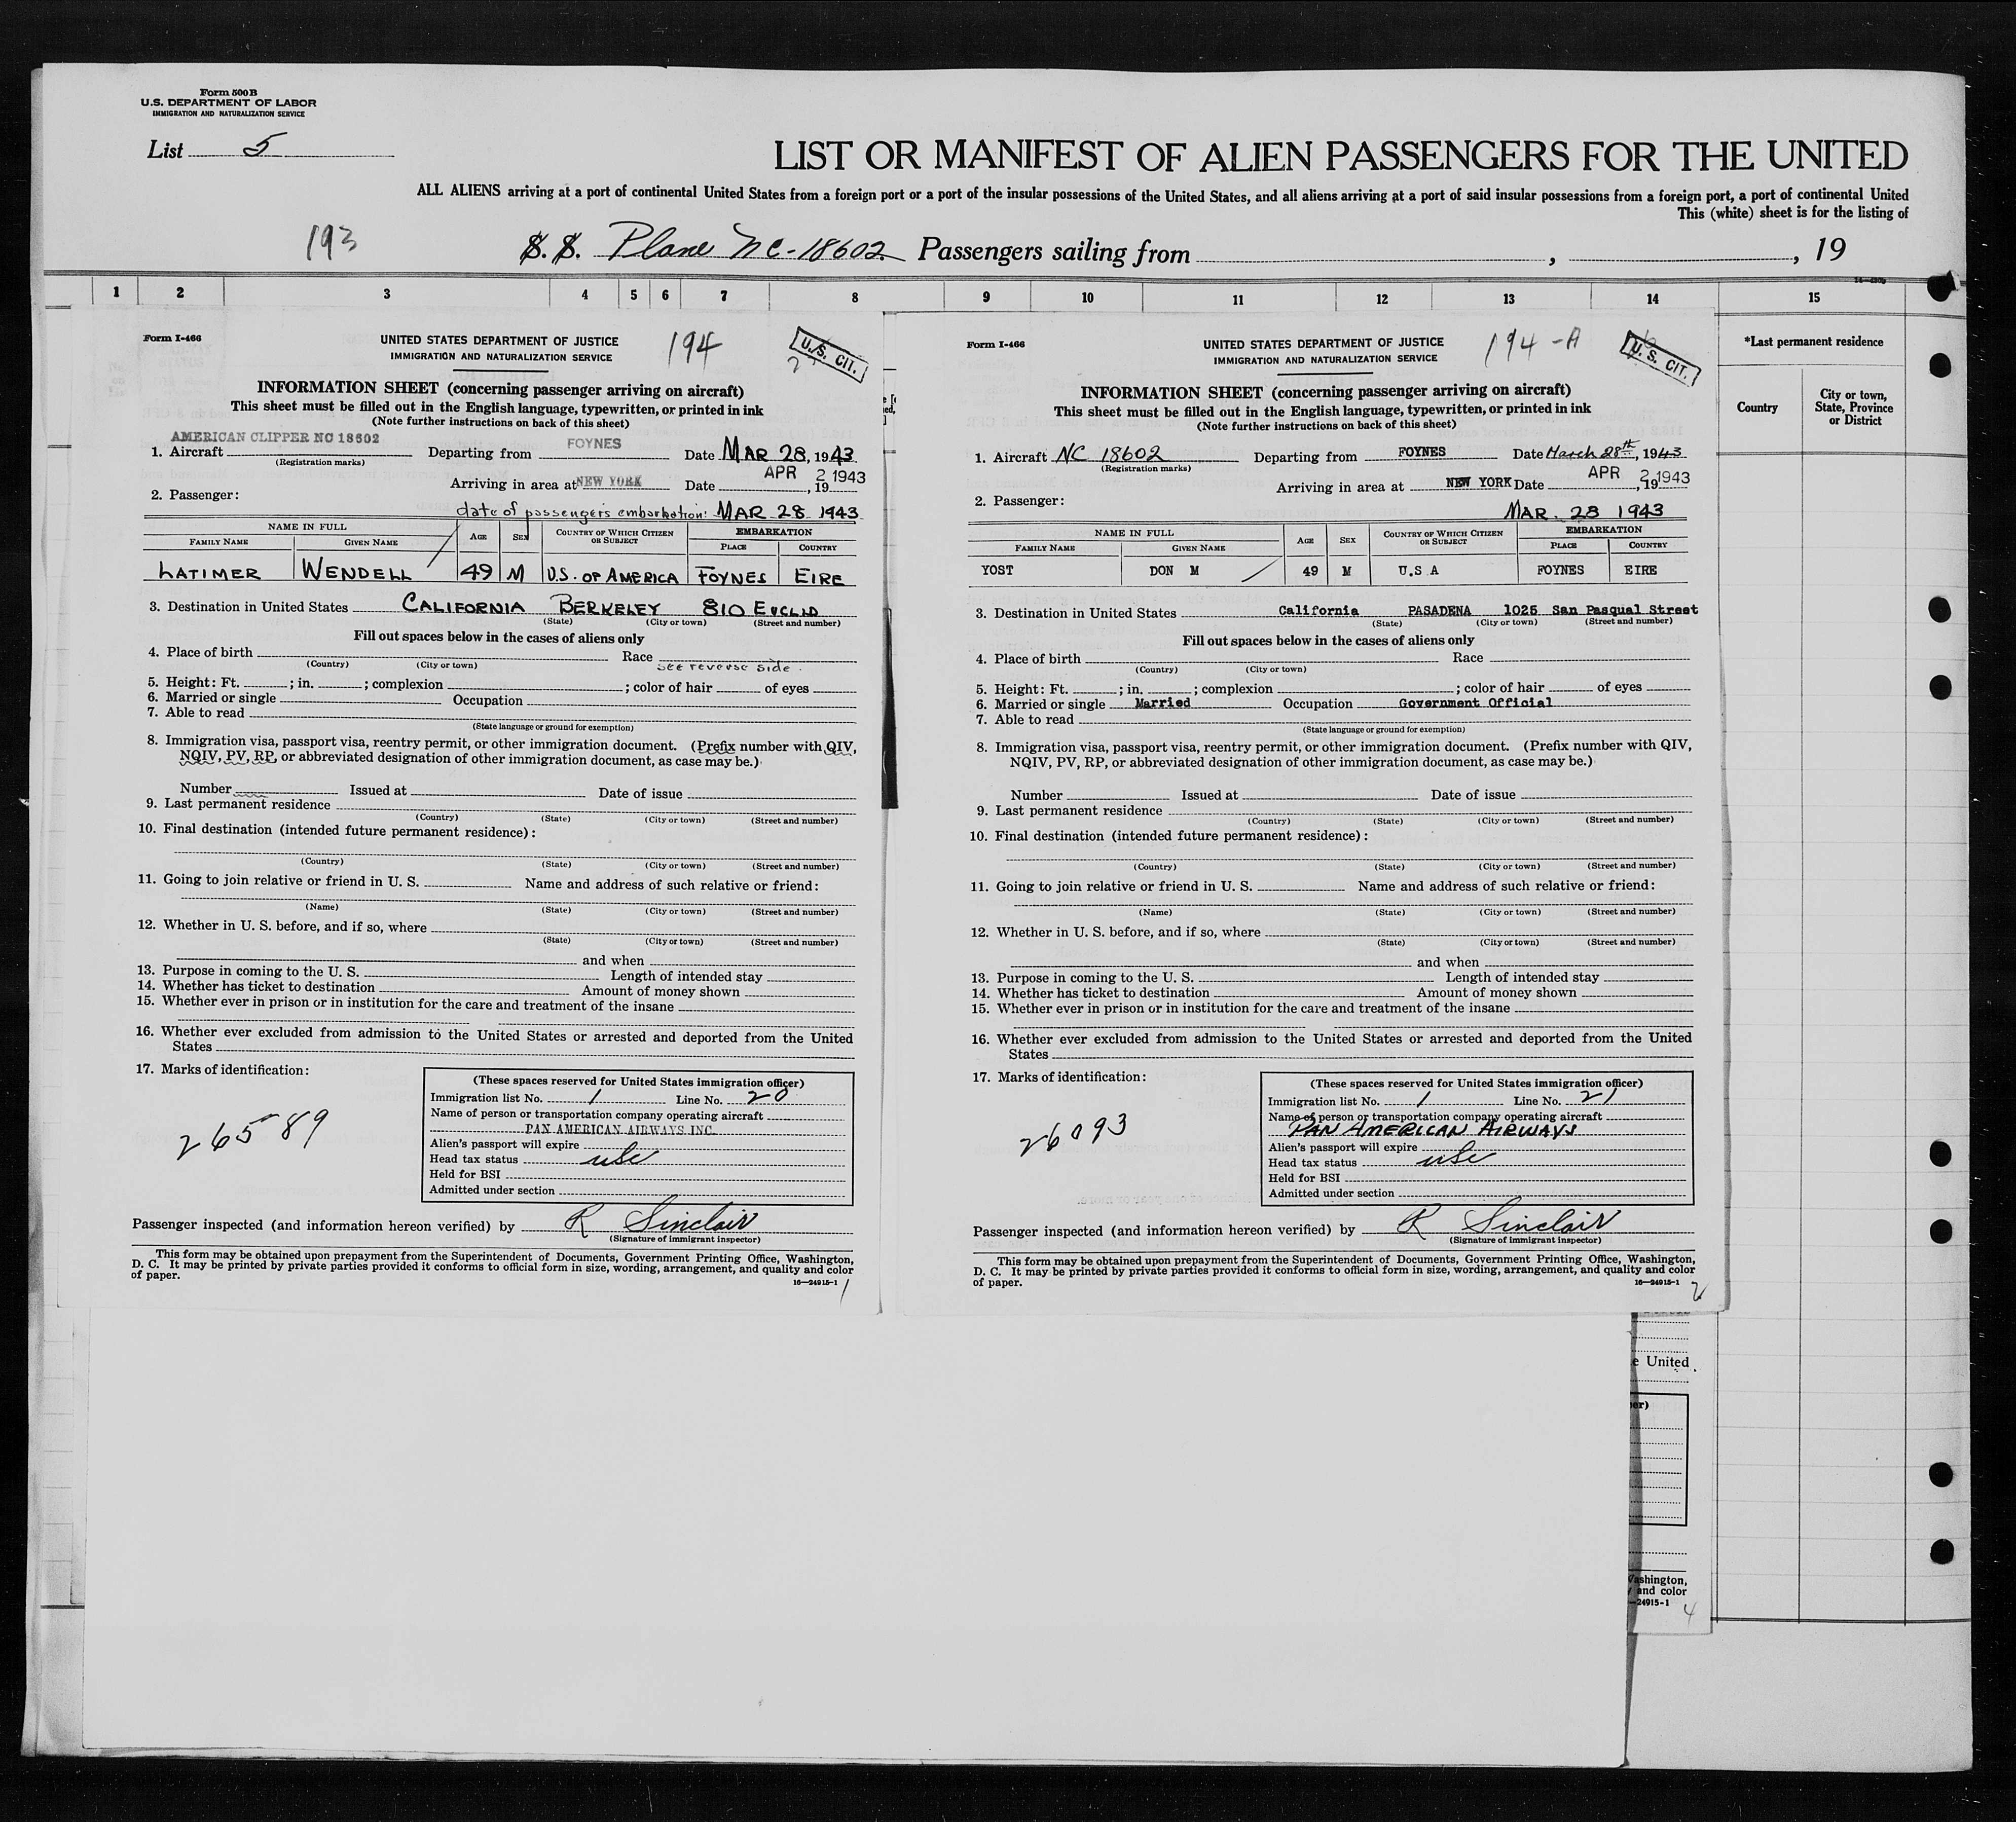 Form 500B
U.S. DEPARTMENT OF LABOR
IMMIGRATION AND NATURALIZATION SERVICE
List 5
LIST OR MANIFEST OF ALIEN PASSENGERS FOR THE UNITED
ALL ALIENS arriving at a port of continental United States from a foreign port or a port of the insular possessions of the United States, and all aliens arriving at a port of said insular possessions from a foreign port, a port of continental United
This (white) sheet is for the listing of
193
S. S. Plane NC-18602 Passengers sailing from , , 19
1 2 3 4 5 6 7 8 9 10 11 12 13 14 15
*Last permanent residence
Country
City or town, State, Province or District
Form I-466
UNITED STATES DEPARTMENT OF JUSTICE
IMMIGRATION AND NATURALIZATION SERVICE
194
U.S. CIT.
INFORMATION SHEET (concerning passenger arriving on aircraft)
This sheet must be filled out in the English language, typewritten, or printed in ink
(Note further instructions on back of this sheet)
AMERICAN CLIPPER NC 18602
1. Aircraft Departing from FOYNES Date MAR 28, 1943
(Registration marks)
Arriving in area at NEW YORK Date APR 2 1943, 19
2. Passenger:
date of passengers embarkation: MAR 28 1943
NAME IN FULL AGE SEX COUNTRY OF WHICH CITIZEN OR SUBJECT EMBARKATION
FAMILY NAME GIVEN NAME PLACE COUNTRY
LATIMER WENDELL 49 M U.S. OF AMERICA FOYNES EIRE
3. Destination in United States CALIFORNIA BERKELEY 810 EUCLID
(State) (City or town) (Street and number)
Fill out spaces below in the cases of aliens only
4. Place of birth Race
(Country) (City or town) see reverse side.
5. Height: Ft. ; in. ; complexion ; color of hair of eyes
6. Married or single Occupation
7. Able to read
(State language or ground for exemption)
8. Immigration visa, passport visa, reentry permit, or other immigration document. (Prefix number with QIV,
NQIV, PV, RP, or abbreviated designation of other immigration document, as case may be.)
Number Issued at Date of issue
9. Last permanent residence
(Country) (State) (City or town) (Street and number)
10. Final destination (intended future permanent residence):
(Country) (State) (City or town) (Street and number)
11. Going to join relative or friend in U. S. Name and address of such relative or friend:
(Name) (State) (City or town) (Street and number)
12. Whether in U. S. before, and if so, where
(State) (City or town) (Street and number)
and when
13. Purpose in coming to the U. S. Length of intended stay
14. Whether has ticket to destination Amount of money shown
15. Whether ever in prison or in institution for the care and treatment of the insane
16. Whether ever excluded from admission to the United States or arrested and deported from the United
States
17. Marks of identification:
26589
(These spaces reserved for United States immigration officer)
Immigration list No. 1 Line No. 20
Name of person or transportation company operating aircraft
PAN AMERICAN AIRWAYS INC.
Alien's passport will expire
Head tax status usc
Held for BSI
Admitted under section
Passenger inspected (and information hereon verified) by R Sinclair
(Signature of immigrant inspector)
This form may be obtained upon prepayment from the Superintendent of Documents, Government Printing Office, Washington,
D. C. It may be printed by private parties provided it conforms to official form in size, wording, arrangement, and quality and color
of paper.
16—24915-1
1
Form I-466
UNITED STATES DEPARTMENT OF JUSTICE
IMMIGRATION AND NATURALIZATION SERVICE
194-A
U.S. CIT.
INFORMATION SHEET (concerning passenger arriving on aircraft)
This sheet must be filled out in the English language, typewritten, or printed in ink
(Note further instructions on back of this sheet)
1. Aircraft NC 18602 Departing from FOYNES Date March 28th, 1943
(Registration marks)
Arriving in area at NEW YORK Date APR 2 1943, 19
2. Passenger:
MAR. 28 1943
NAME IN FULL AGE SEX COUNTRY OF WHICH CITIZEN OR SUBJECT EMBARKATION
FAMILY NAME GIVEN NAME PLACE COUNTRY
YOST DON M 49 M U.S A FOYNES EIRE
3. Destination in United States California PASADENA 1025 San Pasqual Street
(State) (City or town) (Street and number)
Fill out spaces below in the cases of aliens only
4. Place of birth Race
(Country) (City or town)
5. Height: Ft. ; in. ; complexion ; color of hair of eyes
6. Married or single Married Occupation Government Official
7. Able to read
(State language or ground for exemption)
8. Immigration visa, passport visa, reentry permit, or other immigration document. (Prefix number with QIV,
NQIV, PV, RP, or abbreviated designation of other immigration document, as case may be.)
Number Issued at Date of issue
9. Last permanent residence
(Country) (State) (City or town) (Street and number)
10. Final destination (intended future permanent residence):
(Country) (State) (City or town) (Street and number)
11. Going to join relative or friend in U. S. Name and address of such relative or friend:
(Name) (State) (City or town) (Street and number)
12. Whether in U. S. before, and if so, where
(State) (City or town) (Street and number)
and when
13. Purpose in coming to the U. S. Length of intended stay
14. Whether has ticket to destination Amount of money shown
15. Whether ever in prison or in institution for the care and treatment of the insane
16. Whether ever excluded from admission to the United States or arrested and deported from the United
States
17. Marks of identification:
26093
(These spaces reserved for United States immigration officer)
Immigration list No. 1 Line No. 21
Name of person or transportation company operating aircraft
PAN AMERICAN AIRWAYS
Alien's passport will expire
Head tax status usc
Held for BSI
Admitted under section
Passenger inspected (and information hereon verified) by R Sinclair
(Signature of immigrant inspector)
This form may be obtained upon prepayment from the Superintendent of Documents, Government Printing Office, Washington,
D. C. It may be printed by private parties provided it conforms to official form in size, wording, arrangement, and quality and color
of paper.
16—24915-1
2
e United
er)
Washington,
and color
—24915-1
4